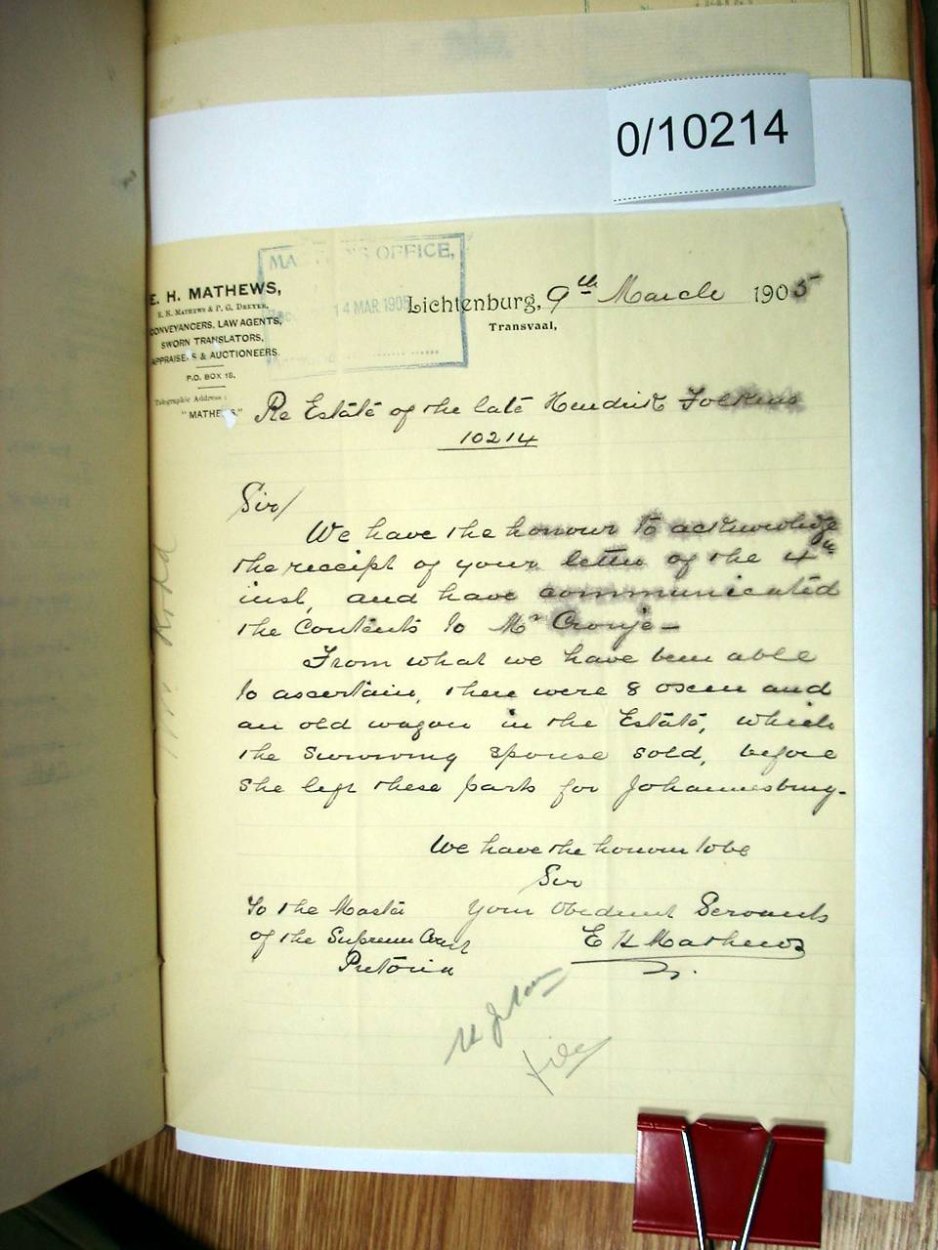 0/10214
MASTER'S OFFICE,
14 MAR 1905
E. H. MATHEWS,
E. H. MATHEWS & P. G. DREYER,
CONVEYANCERS, LAW AGENTS,
SWORN TRANSLATORS,
APPRAISERS & AUCTIONEERS.
P.O. BOX 15.
Telegraphic Address:
"MATHEWS."
Lichtenburg, 9th March 1905
Transvaal,
Re Estate of the late Hendrik
10214
Sir/
We have the honour to acknowledge
the receipt of your letter of the 4th
inst, and have communicated
the Contents to Mr Cronje -
From what we have been able
to ascertain, there were 8 oxen and
an old wagon in the Estate, which
the surviving spouse sold, before
she left these parts for Johannesburg.
We have the honour to be
Sir
Your Obedient Servants
E H Mathews
To the Master
of the Supreme Court
Pretoria
File